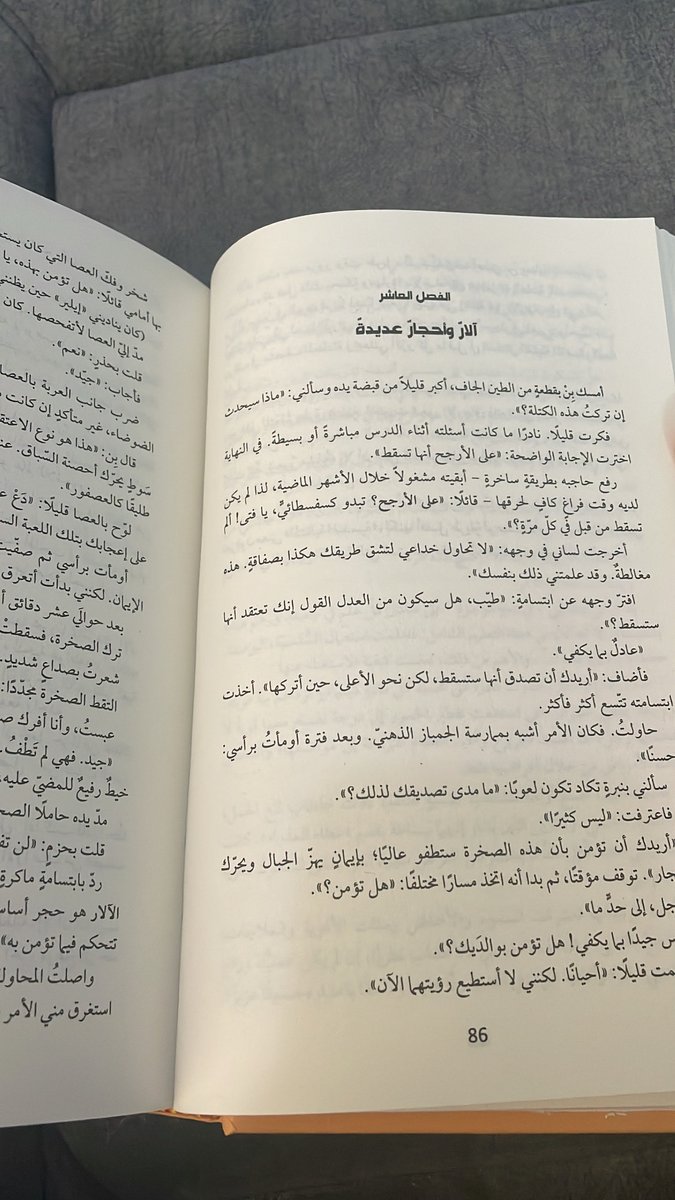 الفصل العاشر
آلارٌ وأحجارٌ عديدةٌ
أمسك بِنْ بقطعةٍ من الطين الجاف، أكبر قليلاً من قبضة يده وسألني: «ماذا سيحدث
إن تركتُ هذه الكتلة؟».
فكرت قليلًا. نادرًا ما كانت أسئلته أثناء الدرس مباشرةً أو بسيطةً. في النهاية
اخترت الإجابة الواضحة: «على الأرجح أنها تسقط».
رفع حاجبه بطريقةٍ ساخرةٍ – أبقيته مشغولاً خلال الأشهر الماضية، لذا لم يكن
لديه وقت فراغ كافٍ لحرقها – قائلًا: «على الأرجح؟ تبدو كسفسطائيٍّ، يا فتى! ألم
تسقط من قبل في كلّ مرّةٍ؟».
أخرجت لساني في وجهه: «لا تحاول خداعي لتشق طريقك هكذا بصفاقةٍ. هذه
مغالطةٌ. وقد علمتني ذلك بنفسك».
افترّ وجهه عن ابتسامةٍ: «طيّب، هل سيكون من العدل القول إنك تعتقد أنها
ستسقط؟».
«عادلٌ بما يكفي».
فأضاف: «أريدك أن تصدق أنها ستسقط، لكن نحو الأعلى، حين أتركها». أخذت
ابتسامته تتّسع أكثر فأكثر.
حاولتُ. فكان الأمر أشبه بممارسة الجمباز الذهنيّ. وبعد فترة أومأتُ برأسي:
حسنًا».
سألني بنبرةٍ تكاد تكون لعوبًا: «ما مدى تصديقك لذلك؟».
فاعترفت: «ليس كثيرًا».
«أريدك أن تؤمن بأن هذه الصخرة ستطفو عاليًا؛ بإيمانٍ يهزّ الجبال ويحرّك
جار». توقف مؤقتًا، ثم بدا أنه اتخذ مسارًا مختلفًا: «هل تؤمن؟».
جل، إلى حدٍّ ما».
س جيدًا بما يكفي! هل تؤمن بوالدَيك؟».
مت قليلًا: «أحيانًا. لكنني لا أستطيع رؤيتهما الآن».
86
شخر وفكّ العصا التي كان يستع
بها أمامي قائلًا: «هل تؤمن بهذه، يا
(كان يناديني «إيلير» حين يظنني
مدّ إليّ العصا لأتفحصها. كان
قلت بحذرٍ: «نعم».
فأجاب: «جيّد».
ضرب جانب العربة بالعصا
الضوضاء، غير متأكدٍ إن كانت
قال بِن: «هذا هو نوع الاعتق
سَوطٍ يحرّك أحصنة السّباق. عند
طليقًا كالعصفور».
لوّح بالعصا قليلًا: «دَعْ ع
على إعجابك بتلك اللعبة الس
أومأت برأسي ثم صفّيت
الإيمان. لكنني بدأت أتعرق
بعد حوالَي عشر دقائق أ
ترك الصخرة، فسقطتْ
شعرتُ بصداعٍ شديدٍ.
التقط الصخرة مجدّدًا:
عبستُ، وأنا أفرك صـ
«جيد. فهي لم تَطْفُ.
خيطٌ رفيعٌ للمضيّ عليه،
مدّ يده حاملًا الصخ
قلت بحزمٍ: «لن تف
ردّ بابتسامةٍ ماكرةٍ
الآلار هو حجر أساس
تتحكم فيما تؤمن به»
واصلتُ المحاول
استغرق مني الأمر